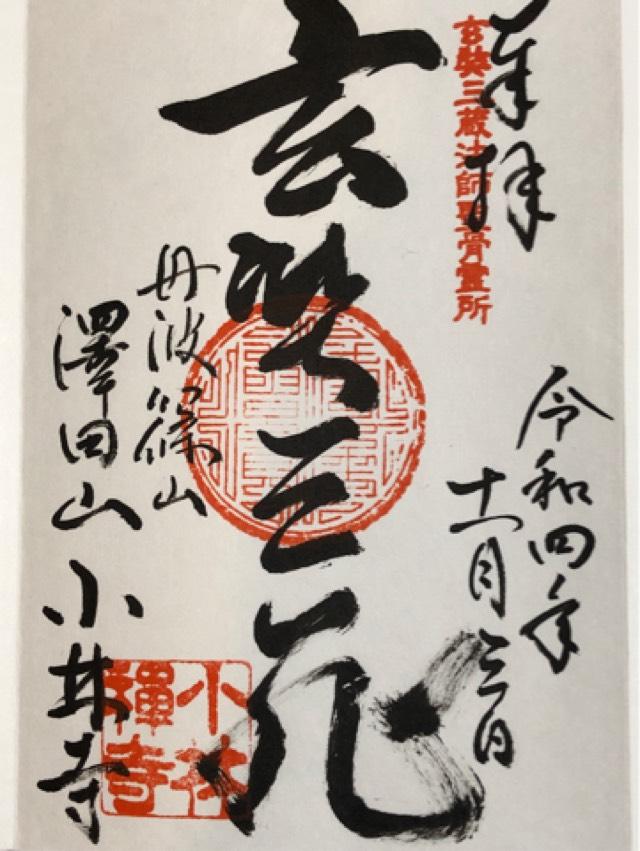 奉拝
玄奘三蔵法師聖骨霊所
令和四年
十一月三日
玄奘三蔵
丹波篠山
澤田山小林寺
小林
禅寺